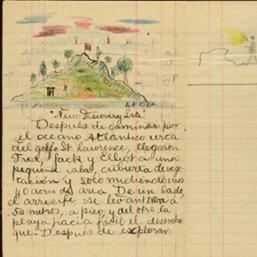 LA ISLA.
"New Discovery Isla"
Después de caminar por
el oceano Atlantico cerca
del golfo St. Lawrence, llegaron
Fred, Jack y Elliot a una
pequeña isla, cubierta de vege-
tación y solo midiendo unos
40 acres de área. De un lado
el arrecife se levantaba a
50 metros, a pico, y del otro la
playa hacia fácil el desembar-
que. Después de explorar